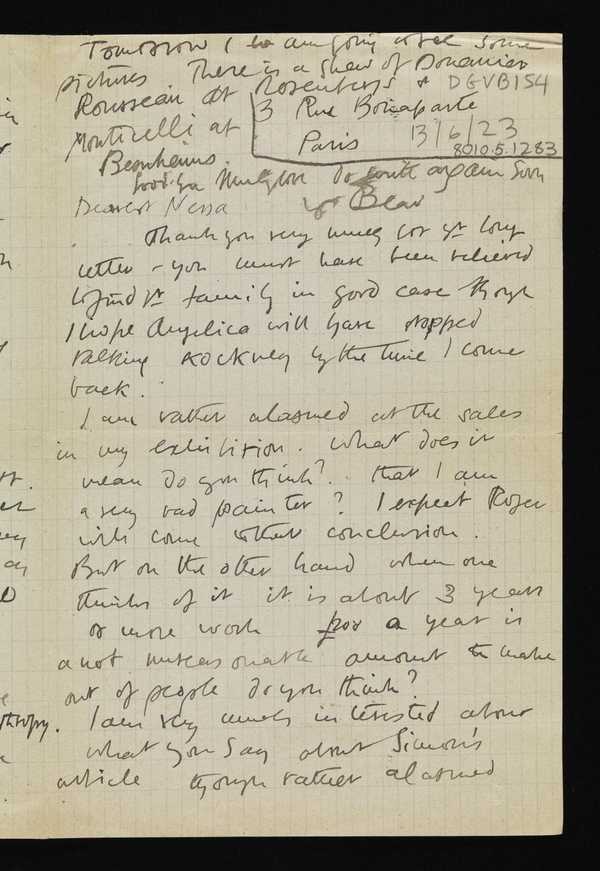 Tomorrow I am going to see some
pictures There is a show of Douanier
Rousseau at Rosenbergs &
Monticelli at
Bernheims.
Goodbye Much love Do write again soon
yr Bear
3 Rue Bonaparte
Paris
DGVB154
13/6/23
8010.5.1283
Dearest Nessa
Thank you very much for yr long
letter - you must have been relieved
to find yr family in good case though
I hope Angelica will have stopped
talking kockney by the time I come
back.
I am rather alarmed at the sales
in my exhibition. What does it
mean do you think? that I am
a very bad painter? I expect Roger
will come to that conclusion.
But on the other hand when one
thinks of it it is about 3 years
or more work for a year is
a not unreasonable amount to make
out of people do you think?
I am very much interested about
what you say about Simon's
article though rather alarmed